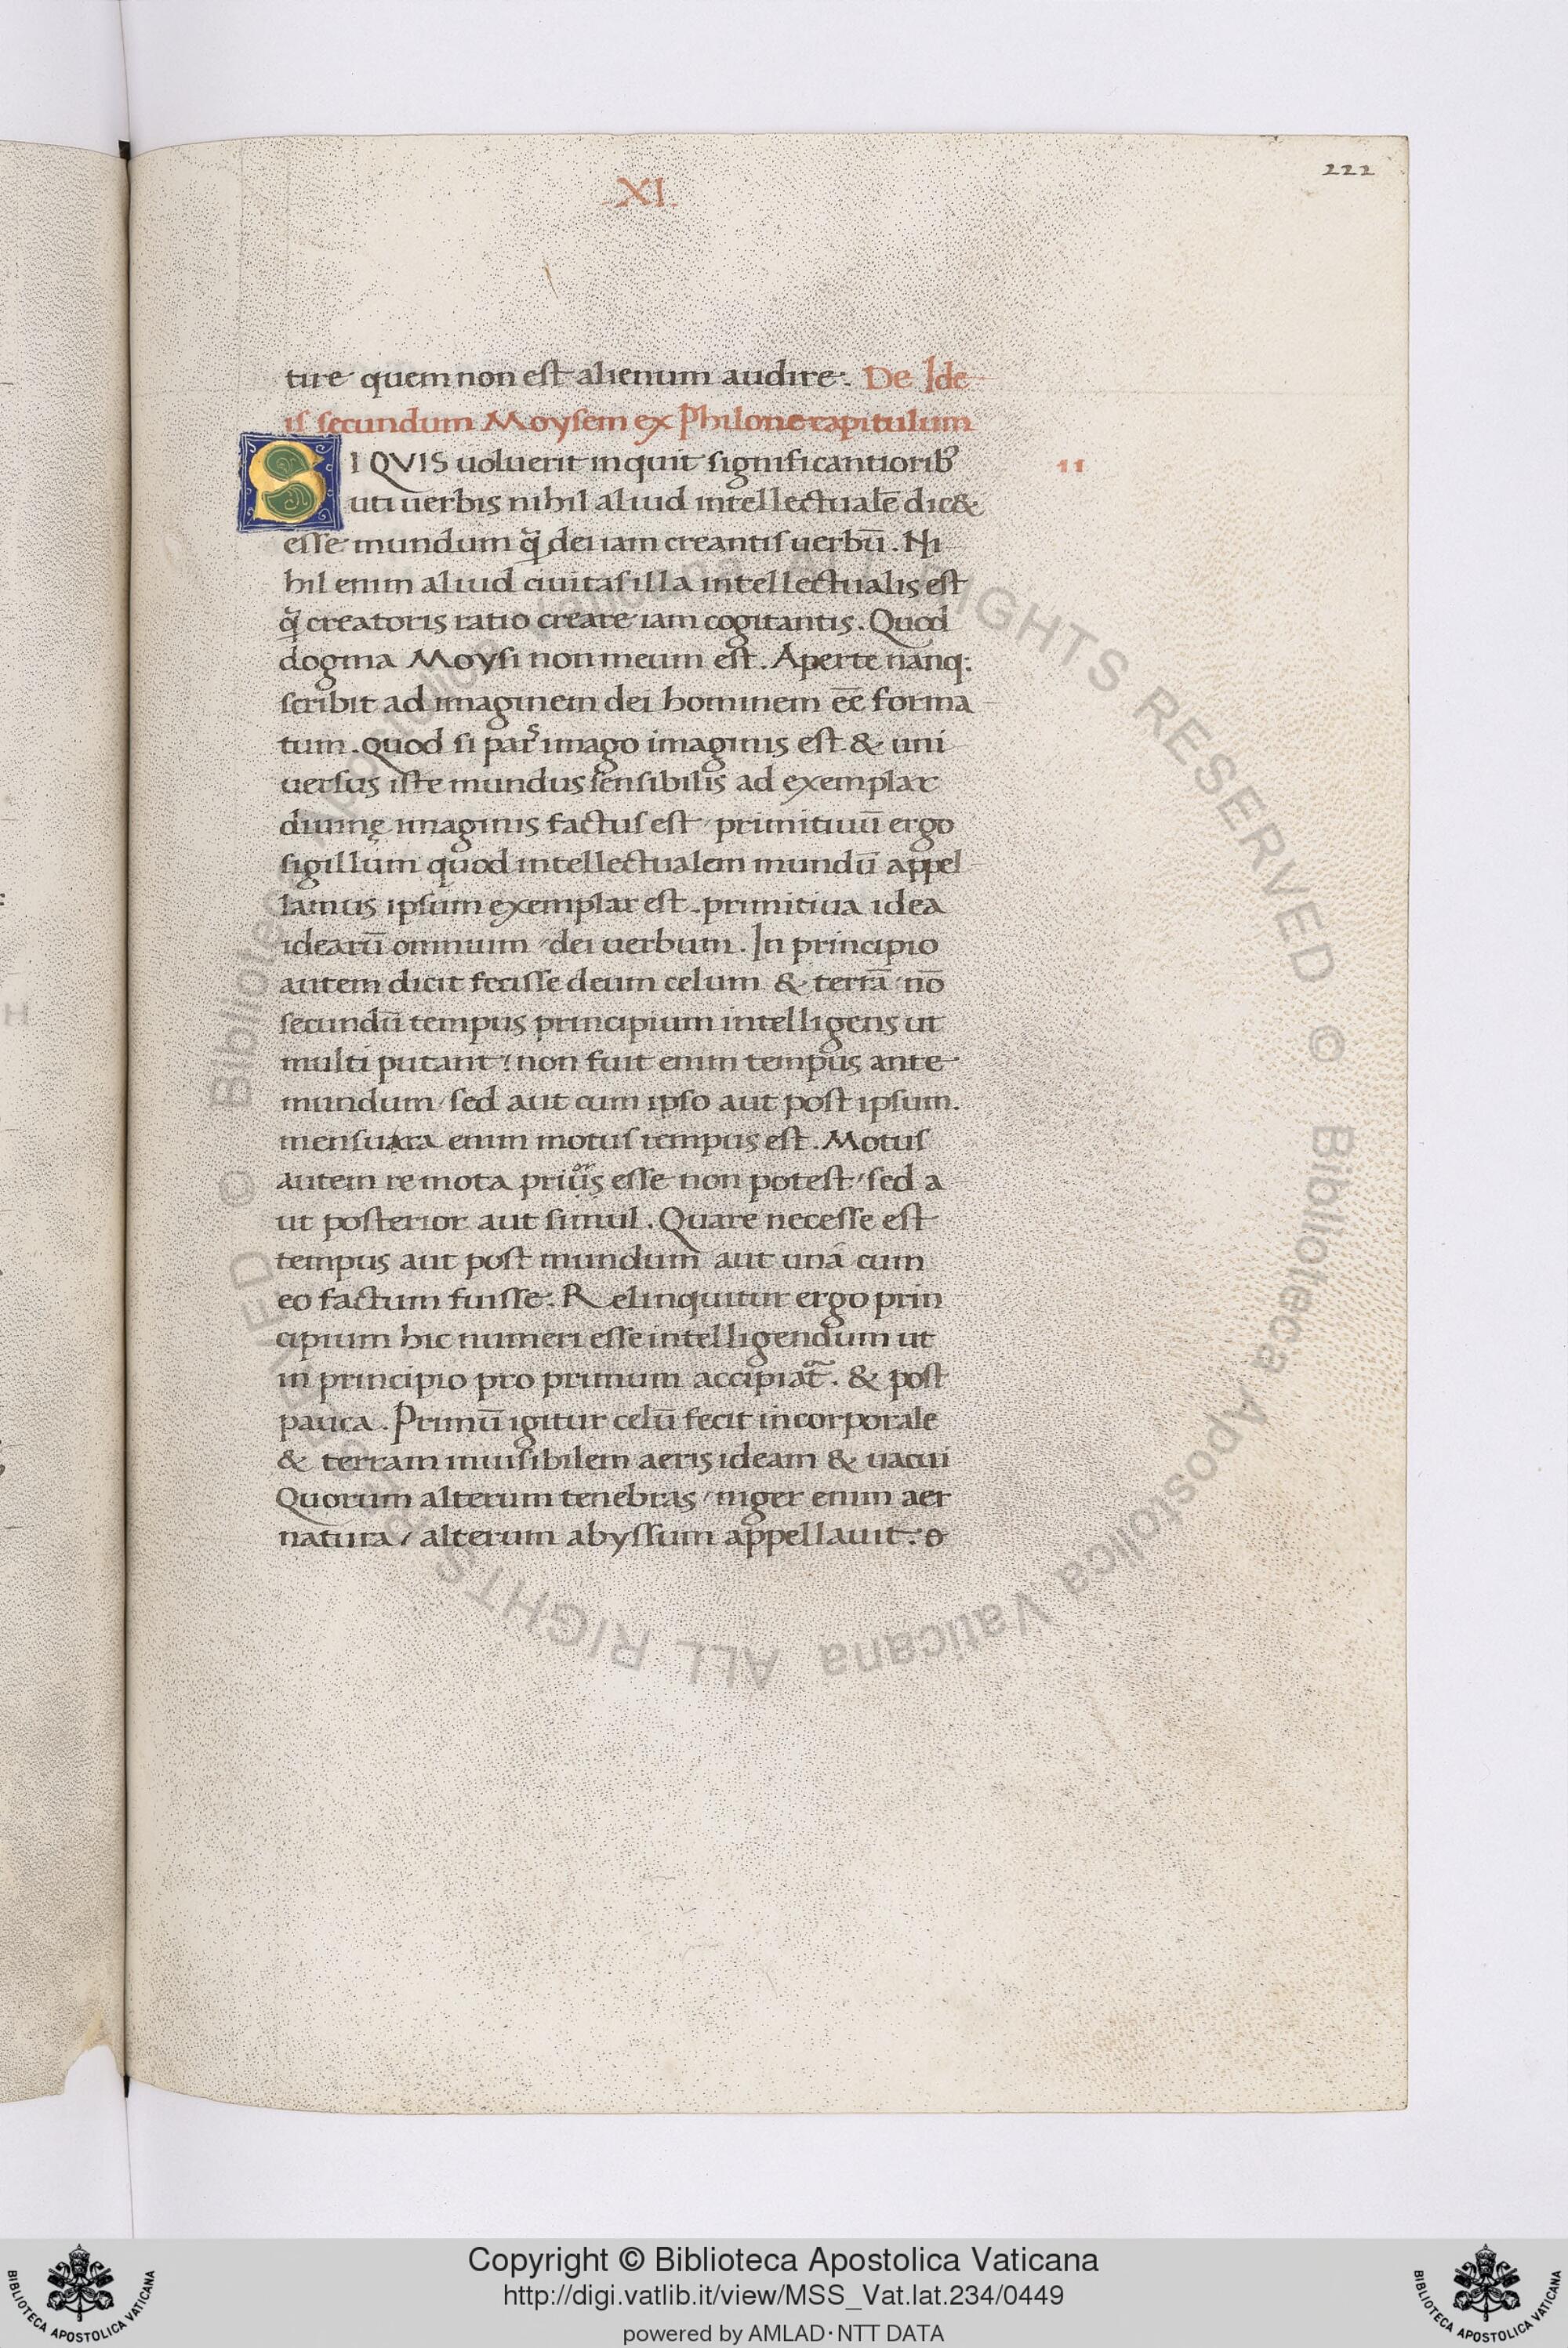 222
XI
tire quem non est alienum audire. De Ide
is secundum Moysem ex Philone capitulum
SI QVIS uoluerit inquit significantiorib᾽
11
uti uerbis nihil aliud intellectualē dic&
esse mundum q̃ dei iam creantis uerbū. Ni
hil enim aliud ciuitas illa intellectualis est
q̃ creatoris ratio creare iam cogitantis. Quod
dogma Moysi non meum est. Aperte nanq;
scribit ad imaginem dei hominem eē forma
tum. quod si pars imago imaginis est & uni
uersus iste mundus sensibilis ad exemplar
diuinę imaginis factus est / primitiuū ergo
sigillum quod intellectualem mundū appel
lamus ipsum exemplar est. primitiua idea
idearū omnium / dei uerbum. In principio
autem dicit fecisse deum celum & terrā / nō
secundū tempus principium intelligens ut
multi putant: non fuit enim tempus ante
mundum / sed aut cum ipso aut post ipsum.
mensura enim motus tempus est. Motus
autem re mota priuor̃s esse non potest / sed a
ut posterior aut simul. Quare necesse est
tempus aut post mundum aut unā cum
eo factum fuisse. Relinquitur ergo prin
cipium hic numeri esse intelligendum ut
in principio pro primum accipiat᷑. & post
pauca. Primū igitur celū fecit incorporale
& terram inuisibilem aeris ideam & uacui
Quorum alterum tenebras / niger enim aer
natura / alterum abyssum appellauit.
© Biblioteca Apostolica Vaticana ALL RIGHTS RESERVED © Biblioteca Apostolica Vaticana ALL RIGHTS RESERVED
Copyright © Biblioteca Apostolica Vaticana
http://digi.vatlib.it/view/MSS_Vat.lat.234/0449
powered by AMLAD·NTT DATA
BIBLIOTECA APOSTOLICA VATICANA
BIBLIOTECA APOSTOLICA VATICANA